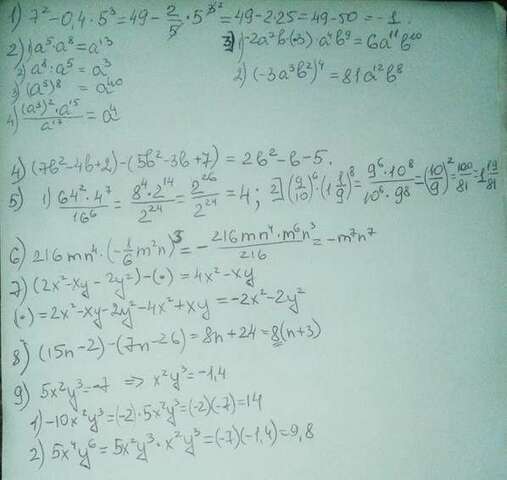 1) 7² - 0,4 · 5³ = 49 - 2/5 · 5³ = 49 - 2·25 = 49 - 50 = -1.
2) 1) a⁵ · a⁸ = a¹³
2) a⁸ : a⁵ = a³
3) (a⁵)⁸ = a⁴⁰
4) (a³)² · a¹⁵ / a¹⁷ = a⁴
3) 1) -2a²b · (-3) · a⁴b⁹ = 6a¹¹b¹⁰
2) (-3a³b²)⁴ = 81a¹²b⁸
4) (7b² - 4b + 2) - (5b² - 3b + 7) = 2b² - b - 5.
5) 1) 64² · 4⁷ / 16⁶ = 8⁴ · 2¹⁴ / 2²⁴ = 2²⁶ / 2²⁴ = 4; 2) (9/10)⁶ · (1 1/9)⁸ = 9⁶ · 10⁸ / 10⁶ · 9⁸ = (10/9)² = 100/81 = 1 19/81
6) 216mn⁴ · (-1/6 m²n)³ = - 216mn⁴ · m⁶n³ / 216 = -m⁷n⁷
7) (2x² - xy - 2y²) - (·) = 4x² - xy
(·) = 2x² - xy - 2y² - 4x² + xy = -2x² - 2y²
8) (15n - 2) - (7n - 26) = 8n + 24 = 8(n + 3)
9) 5x²y³ = -7 => x²y³ = -1,4
1) -10x²y³ = (-2) · 5x²y³ = (-2)(-7) = 14
2) 5x⁴y⁶ = 5x²y³ · x²y³ = (-7)(-1,4) = 9,8